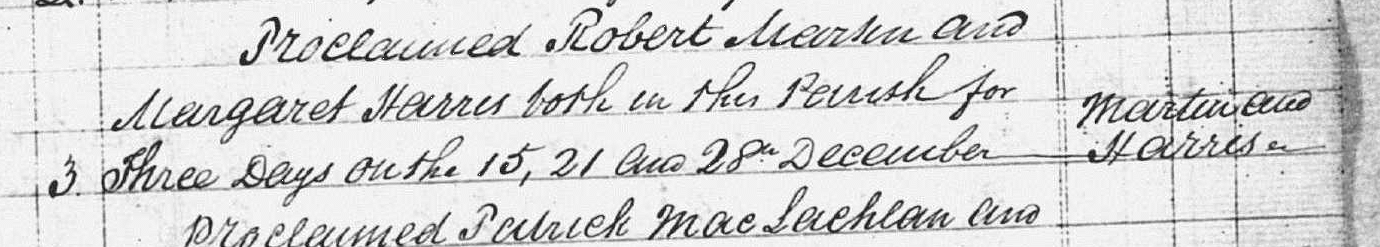 Proclaimed Robert Martin and
Margaret Harris both in this Parish for
Martin and
3. Three Days on the 15, 21 and 28th December
Harris
Proclaimed Patrick MacLachlan and